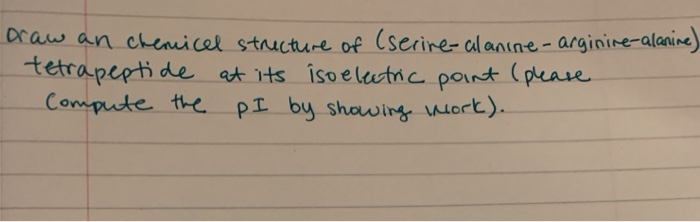 Draw an chemical structure of (serine-alanine-arginine-alanine)
tetrapeptide at its isoelectric point (please
Compute the pI by showing work).